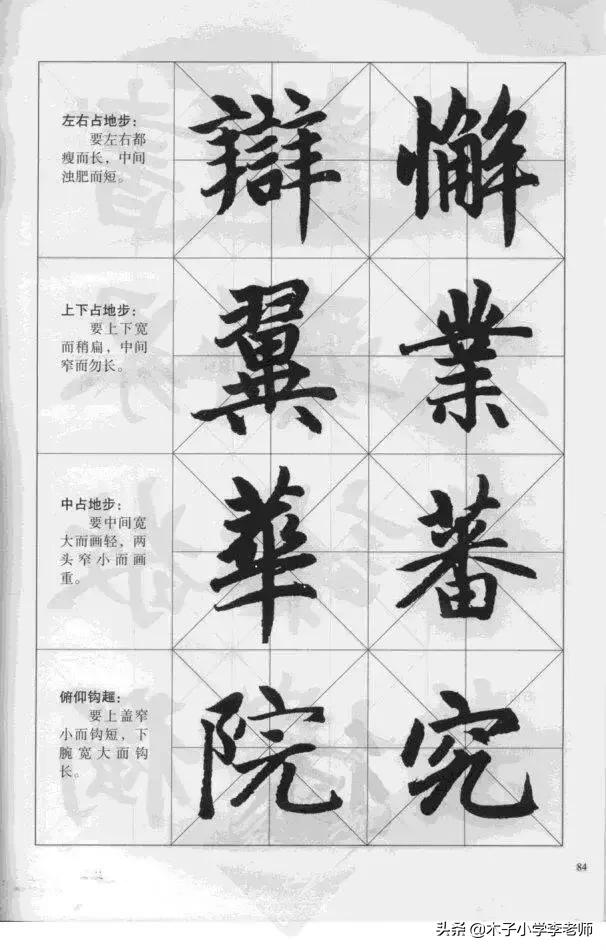 左右占地步：
要左右都
瘦而长，中间
浊肥而短。
辯 懈
上下占地步：
要上下宽
而稍扁，中间
窄而勿长。
翼 業
中占地步：
要中间宽
大而画轻，两
头窄小而画
重。
華 蕃
俯仰钩趯：
要上盖窄
小而钩短，下
腕宽大面钩
长。
院 究
84
头条 @木子小学李老师